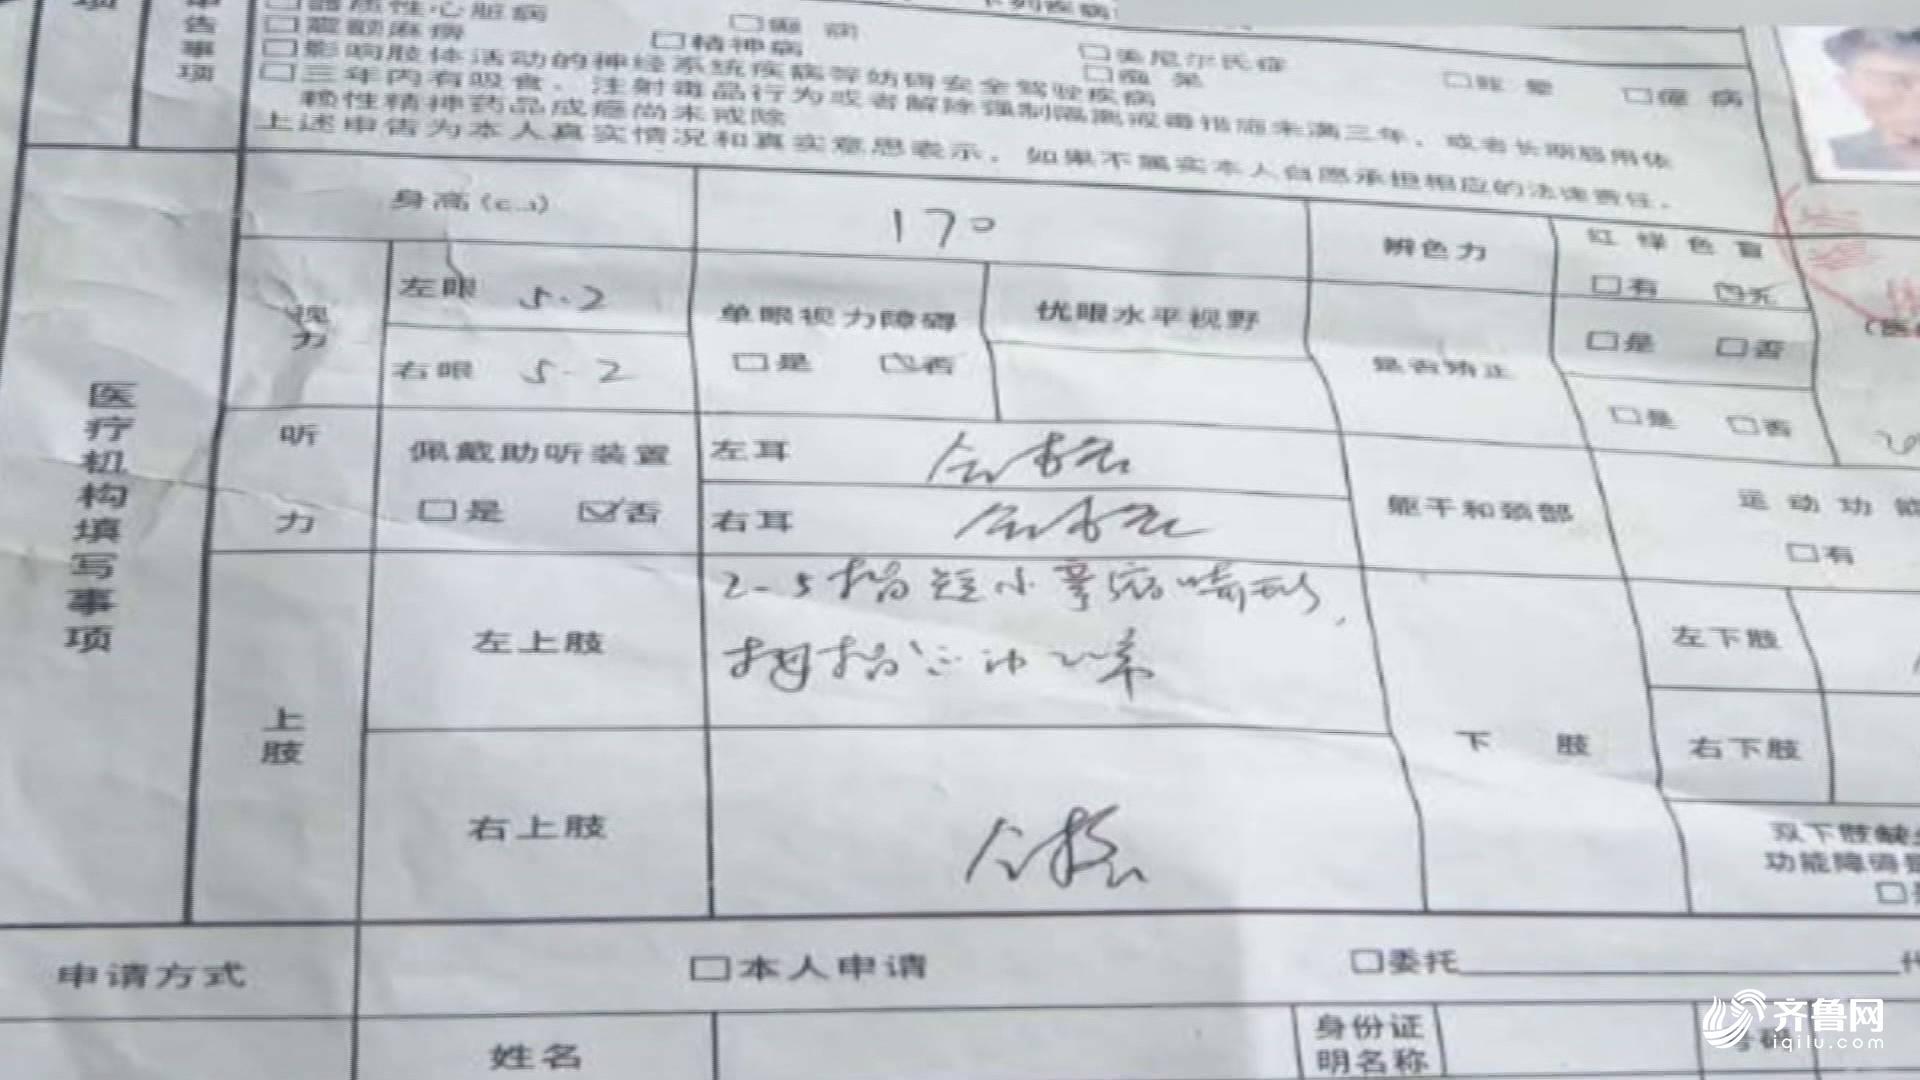 下列疾病
器质性心脏病 □癫 病 □美尼尔氏症 □眩 晕 □癔 病
□震颤麻痹 □精神病 □痴 呆
□影响肢体活动的神经系统疾病等妨碍安全驾驶疾病
□三年内有吸食、注射毒品行为或者解除强制隔离戒毒措施未满三年，或者长期服用依
赖性精神药品成瘾尚未戒除
上述申告为本人真实情况和真实意思表示，如果不属实本人自愿承担相应的法律责任。
告事项
医疗机构填写事项
身高 170
辨色力 红绿色盲
□有 ☑无
视力
左眼 5.2
右眼 5.2
单眼视力障碍
□是 ☑否
优眼水平视野
是否矫正
□是 □否
□是 □否
听力
佩戴助听装置
□是 ☑否
左耳 合格
右耳 合格
躯干和颈部
运动功能
□有
上肢
左上肢
2-5指短小挛缩畸形，
拇指正常
右上肢 合格
下 肢
左下肢
右下肢
双下肢缺
功能障碍是
申请方式
□本人申请 □委托
姓名
身份证
明名称
号码
齐鲁网
iqilu.com